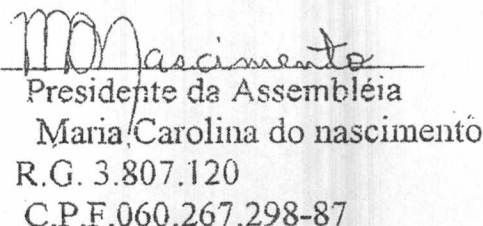 MD Nascimento
Presidente da Assembléia
Maria Carolina do nascimento
R.G. 3.807.120
C.P.F.060.267.298-87